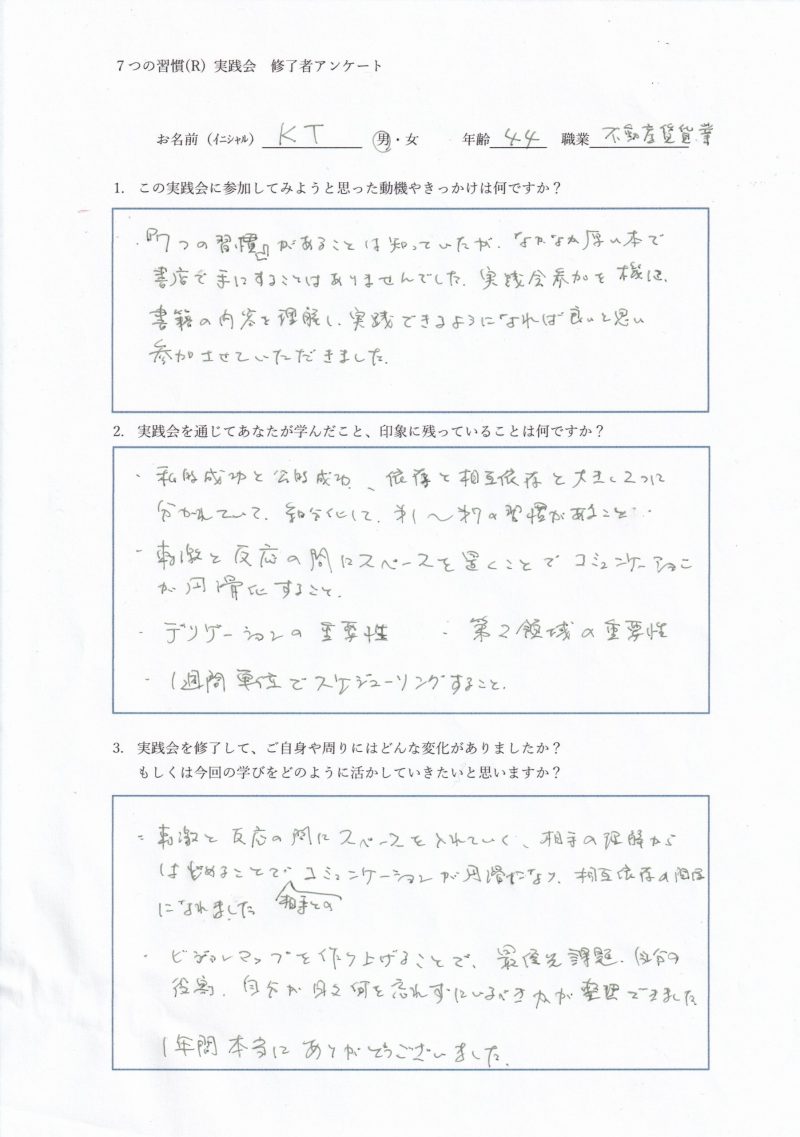 7つの習慣(R) 実践会　修了者アンケート
お名前（ｲﾆｼｬﾙ） KT 男・女 年齢 44 職業 不動産賃貸業
1. この実践会に参加してみようと思った動機やきっかけは何ですか？
・『7つの習慣』があることは知っていたが、なかなか厚い本で
書店で手にすることはありませんでした。実践会参加を機に、
書籍の内容を理解し、実践できるようになれば良いと思い
参加させていただきました。
2. 実践会を通じてあなたが学んだこと、印象に残っていることは何ですか？
・私的成功と公的成功、依存と相互依存と大きく2つに
分かれていて、細分化して、第1〜第7の習慣があること。
・刺激と反応の間にスペースを置くことでコミュニケーション
が円滑化すること。
・デリゲーションの重要性 ・第2領域の重要性
・1週間単位でスケジューリングすること。
3. 実践会を修了して、ご自身や周りにはどんな変化がありましたか？
もしくは今回の学びをどのように活かしていきたいと思いますか？
・刺激と反応の間にスペースを入れていく、相手の理解から
はじめることでコミュニケーションが円滑になり、相互依存の関係
になれました 相手との
・ビジョンマップを作り上げることで、最優先課題、自分の
役割、自分が日々何を忘れずにいるべきかが整理できました
1年間本当にありがとうございました。